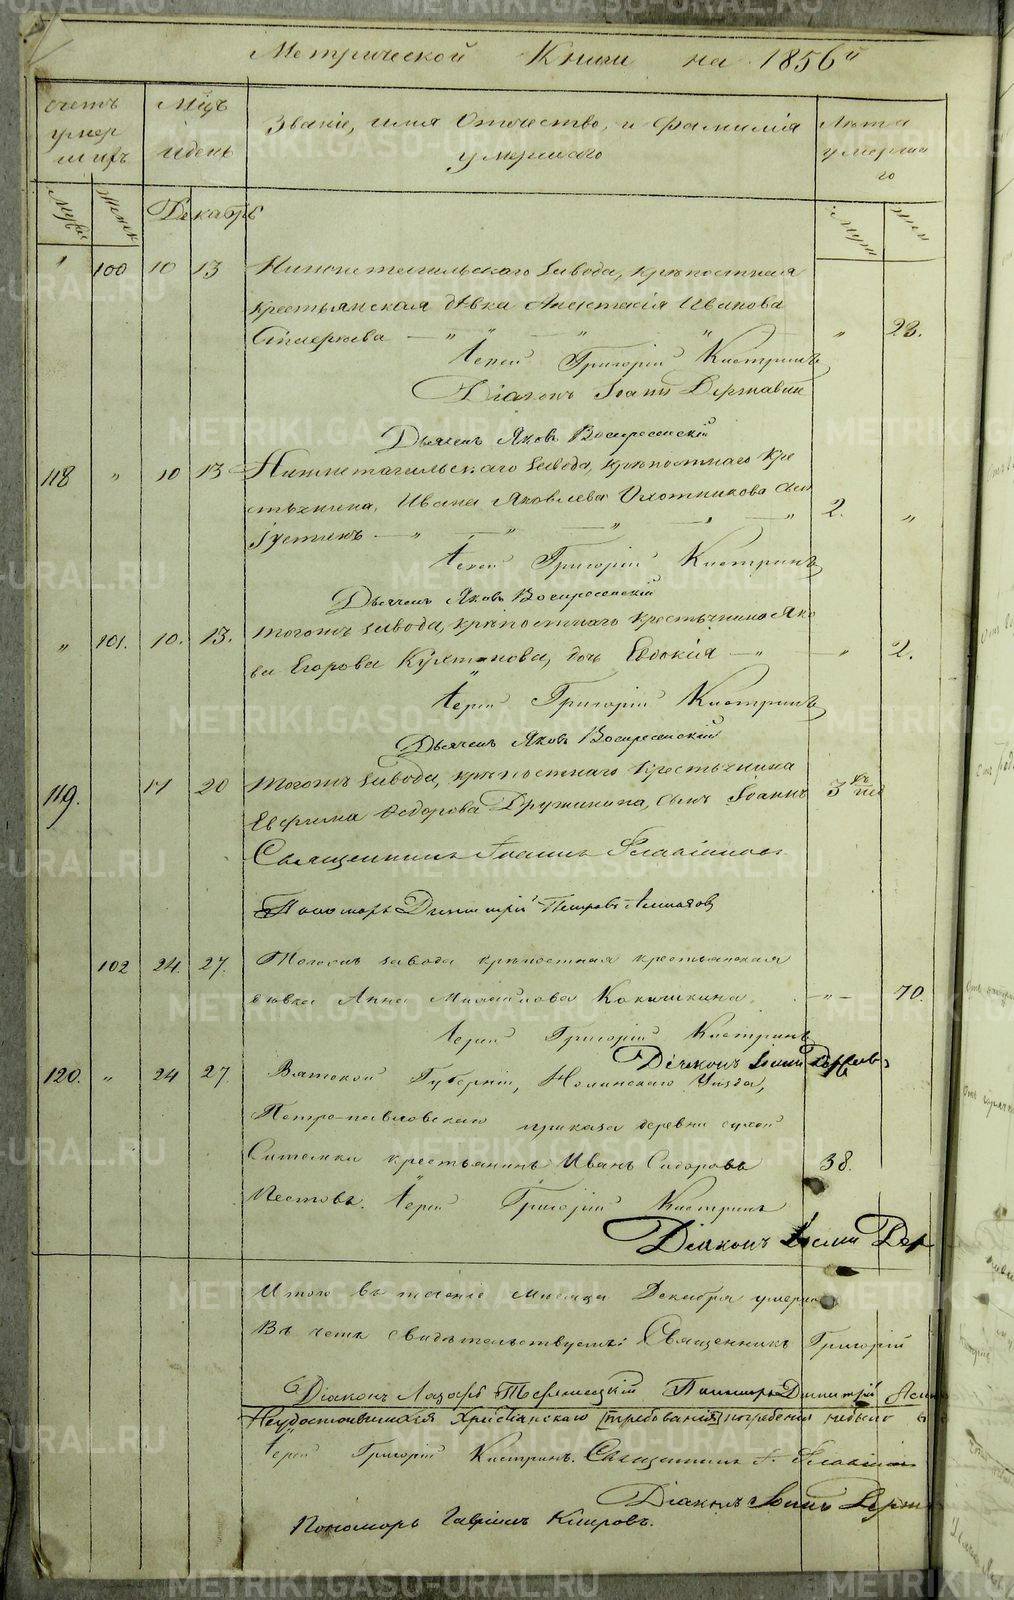 Метрической Книги на 1856й
Счетъ умершихъ
Мцъ и день
Званіе, имя Отчество, и Фамилія умершаго
Лѣта умершаго
Муж Женск
Декабрь
муж жен
100 10 13 Нижнетагильскаго завода, крѣпостная
крестьянская дѣвка Анастасія Иванова
" 23.
Іерей Григорій Кистринъ
Діаконъ Іоаннъ Державин
Дьячекъ Яковъ Воскресенскій
118 " 10 13 Нижнетагильскаго завода, крѣпостнаго кре
стьянина, Ивана Яковлева Охотникова сын
Іустинъ 2. "
Іерей Григорій Кистринъ
Дьячекъ Яковъ Воскресенскій
" 101. 10. 13. Тогожъ завода, крѣпостнаго крестьянина Яко
ва Егорова дочь Евдокія " 2.
Іерей Григорій Кистринъ
Дьячекъ Яковъ Воскресенскій
119. 17 20 Тогожъ завода, крѣпостнаго крестьянина
Евфима Ѳедорова Дружинина, сынъ Іоаннъ 3
Священникъ Іоаннъ
Пономарь Димитрій Петровъ
102 24. 27. Тогожъ завода крѣпостная крестьянская
дѣвка Анна Михайлова Кокушкина " 70.
Іерей Григорій Кистринъ
Діаконъ
120. " 24 27 Вятской Губерніи, Нолинскаго Уѣзда,
Петро-павловскаго приказа деревни
крестьянинъ Иванъ Сидоровъ 38.
Пестовъ. Іерей Григорій Кистринъ
Діаконъ Дер
Итого въ теченіе мѣсяца Декабря умерш
Въ чемъ свидѣтельствуемъ: Священникъ Григорій
Діаконъ Лазарь Пономарь Димитрій
Неудостоившихся Христіанскаго [требованія] погребенія небыло
Іерей Григорій Кистринъ. Священникъ І.
Діаконъ Іоаннъ Держ
Пономарь Гавріилъ Кипровъ.
METRIKI.GASO-URAL.RU